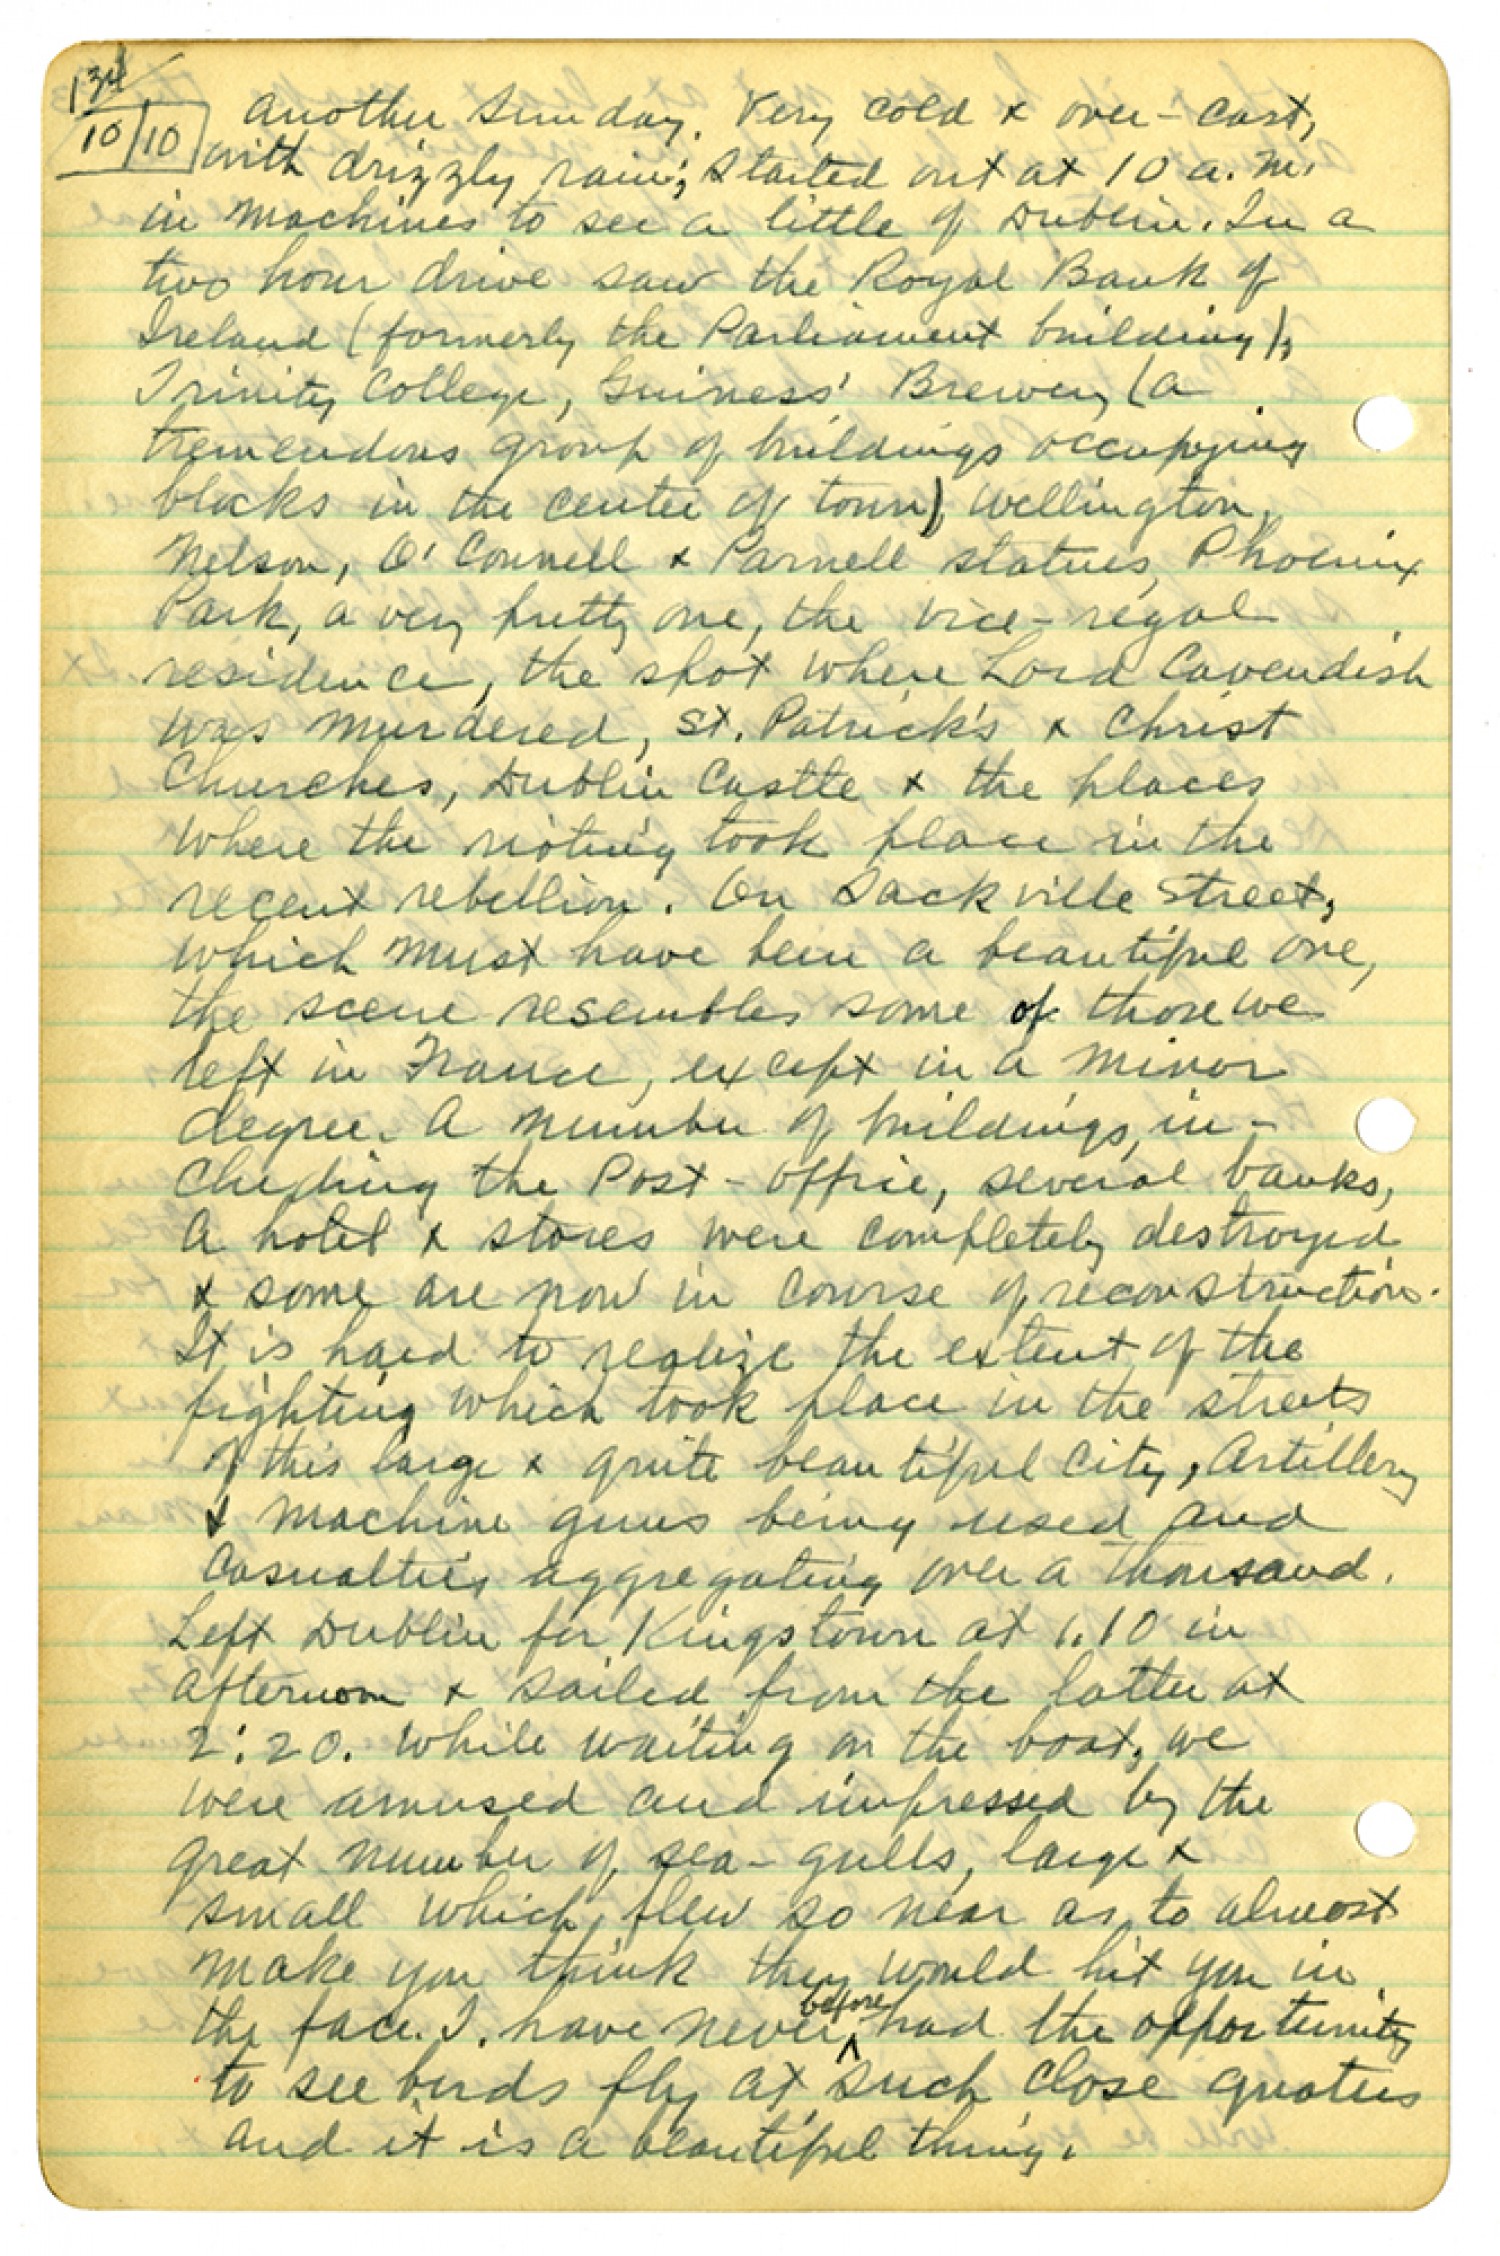 134
10 10 Another Sunday. Very cold & over-cast,
with drizzly rain; started out at 10 a.m.
in machines to see a little of Dublin. In a
two hour drive saw the Royal Bank of
Ireland (formerly the Parliament building),
Trinity College, Guiness' Brewery (a
tremendous group of buildings occupying
blocks in the center of town), Wellington,
Nelson, O'Connell & Parnell statues, Phoenix
Park, a very pretty one, the vice-regal
residence, the spot where Lord Cavendish
was murdered, St. Patrick's & Christ
Churches, Dublin Castle & the places
where the rioting took place in the
recent rebellion. On Sackville Street,
which must have been a beautiful one,
the scene resembles some of those we
left in France, except in a minor
degree. A number of buildings, in-
cluding the Post-office, several banks,
a hotel & stores were completely destroyed
& some are now in course of reconstruction.
It is hard to realize the extent of the
fighting which took place in the streets
of this large & quite beautiful city, artillery
& machine guns being used and
casualties aggregating over a thousand.
Left Dublin for Kingstown at 1.10 in
afternoon & sailed from the latter at
2:20. While waiting on the boat, we
were amused and impressed by the
great number of sea-gulls, large &
small which flew so near as to almost
make you think they would hit you in
the face. I have never before had the opportunity
to see birds fly at such close quaters
and it is a beautiful thing.